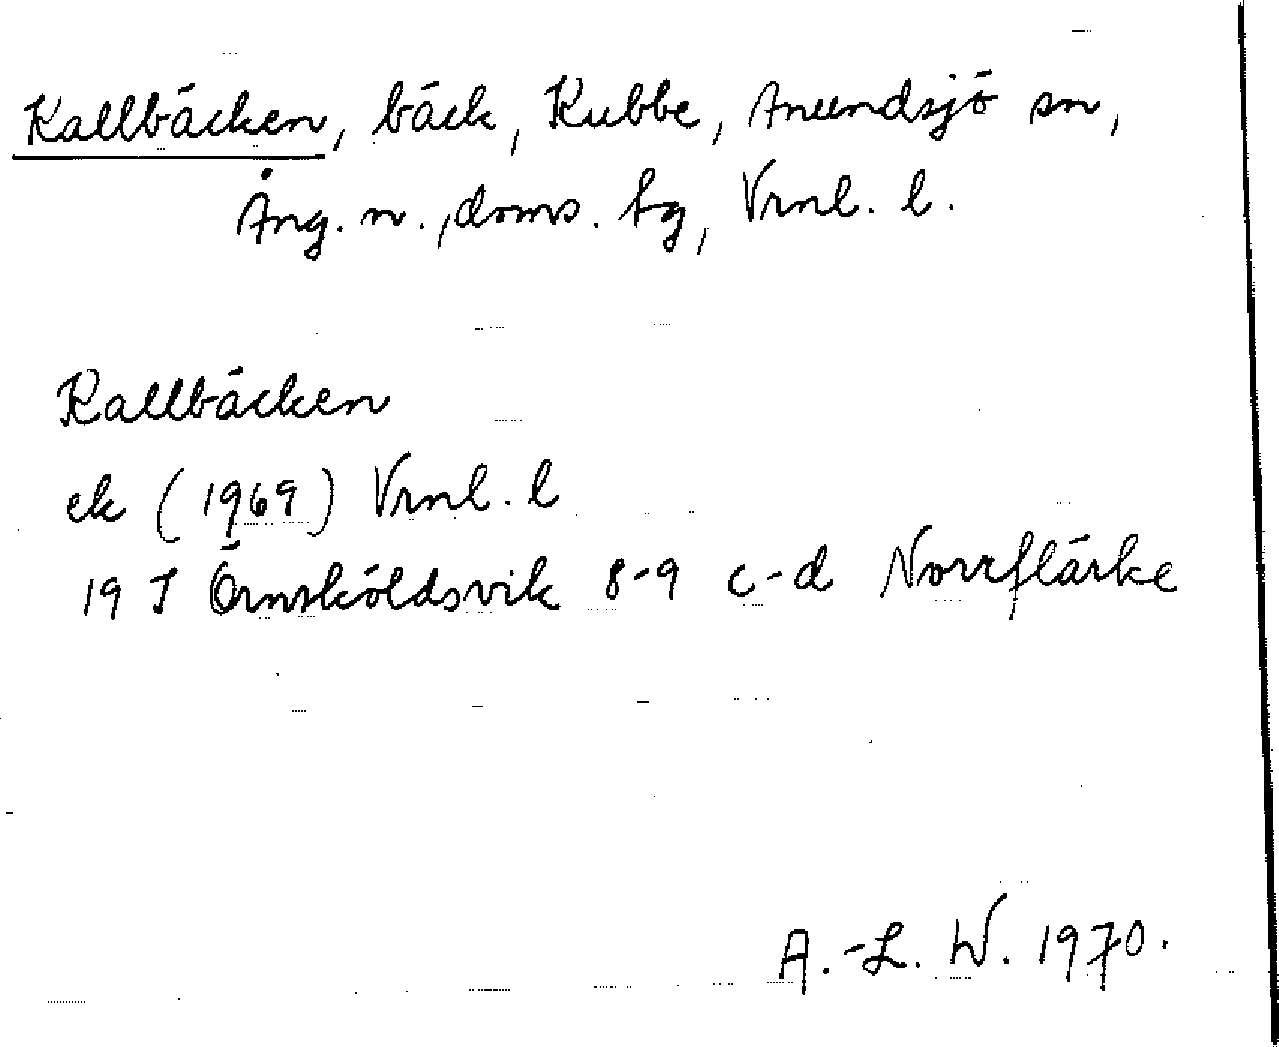 Kallbäcken, bäck, Kubbe, Anundsjö sn,
Ång. n., doms. tg, Vrnl. l.
Kallbäcken
ek (1969) Vrnl. l
19 I Örnsköldsvik 8-9 c-d Norrflärke
A.-L. W. 1970.